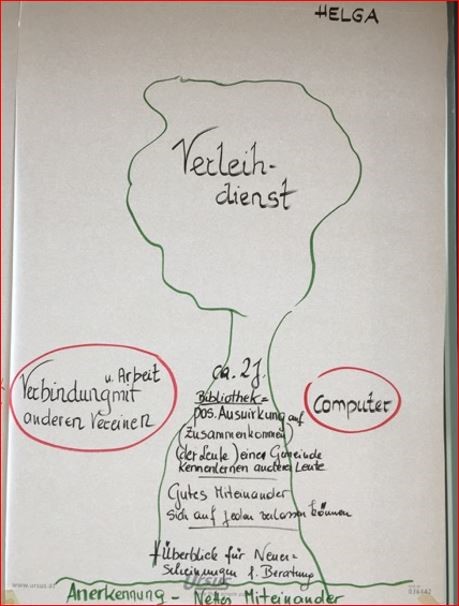 HELGA
Verleih-
dienst
ca. 2J.
Bibliothek =
pos. Auswirkung auf
(Zusammenkommen)
(der Leute) einer Gemeinde
kennenlernen anderer Leute
Gutes Miteinander
sich auf jeden verlassen können
Überblick für Neuer-
scheinungen f. Beratung
u. Arbeit
Verbindung mit
anderen Vereinen
Computer
www.ursus.at
Ursus
Anerkennung - Nettes Miteinander